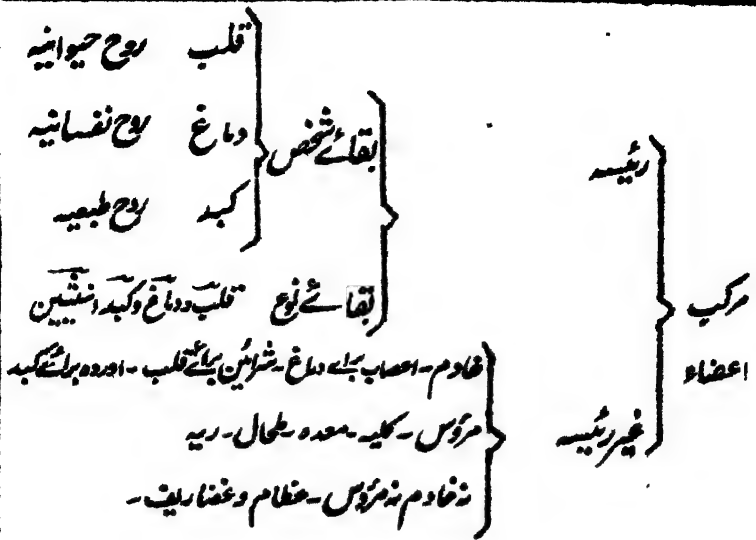 مرکب اعضاء
رئیسہ
بقائے شخص
قلب روح حیوانیہ
دماغ روح نفسانیہ
کبد روح طبعیہ
بقائے نوع قلب و دماغ و کبد انثیین
غیر رئیسہ
خادم۔ اعصاب برائے دماغ۔ شرائین برائے قلب۔ اوردہ برائے کبد
مرؤس۔ کلیہ۔ معدہ۔ طحال۔ ریہ
نہ خادم نہ مرؤس۔ عظام و غضاریف۔